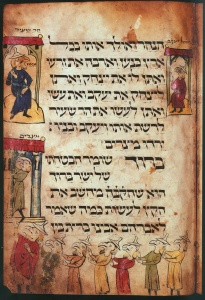 הר שעיר
הנהר ואולך אותו בכל
ואתן לו את יצחק ואתן
ליצחק את יעקב ואת
ואתן לעשו את הר שעיר
לרשת אותו ויעקב ובניו
ירדו מצרים
מצרים
ברוך שומר הבטחתו
לישראל ברוך
הוא מחשב את
הקץ לעשות כמה שאמר
לאברהם אבינו ברית בין